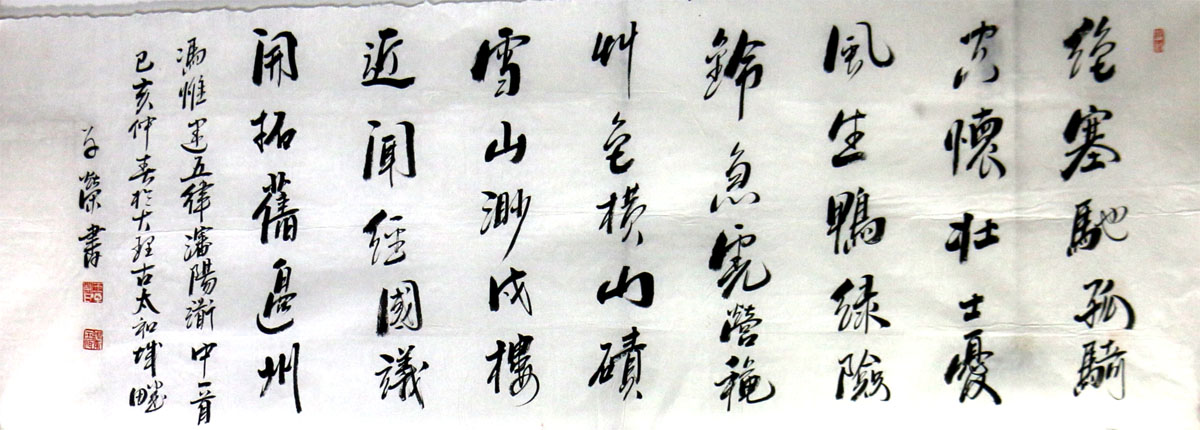 絶塞馳孤騎
空懷壯士憂
風生鴨綠險
鈴急虎營穐
艸色橫山磧
雪山渺戍樓
近聞經國議
開拓舊邊州
馮惟建五律瀋陽衜中一首
己亥仲春於大理古太和城
榮書